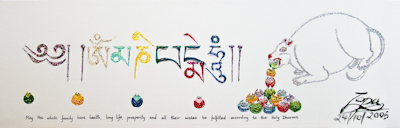 ༄༅། །ཨོཾ་མ་ཎི་པདྨེ་ཧཱུྃ། །
May the whole family have health, long life, prosperity and all their wishes be fulfilled according to the Holy Dharma